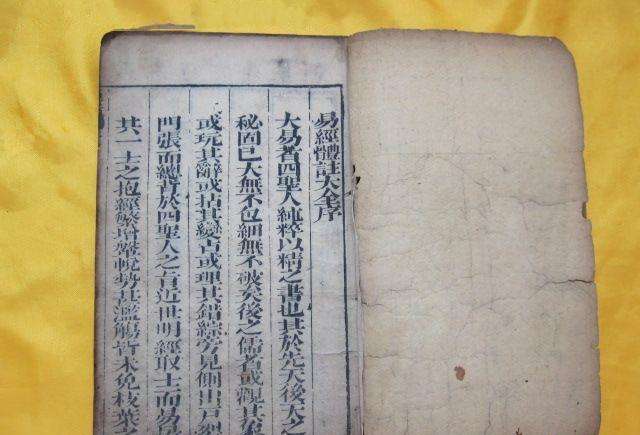 易經體註大全序
大易者四聖人純粹以精之書也其於先天後天之
秘固已大無不包細無不破矣後之儒者或觀其象
或玩其辭或拈其變占或理其錯綜旁見側出戶裂
門張而總書於四聖人之言近世明經取士而易居
其一士之抱經
皆未免枝葉